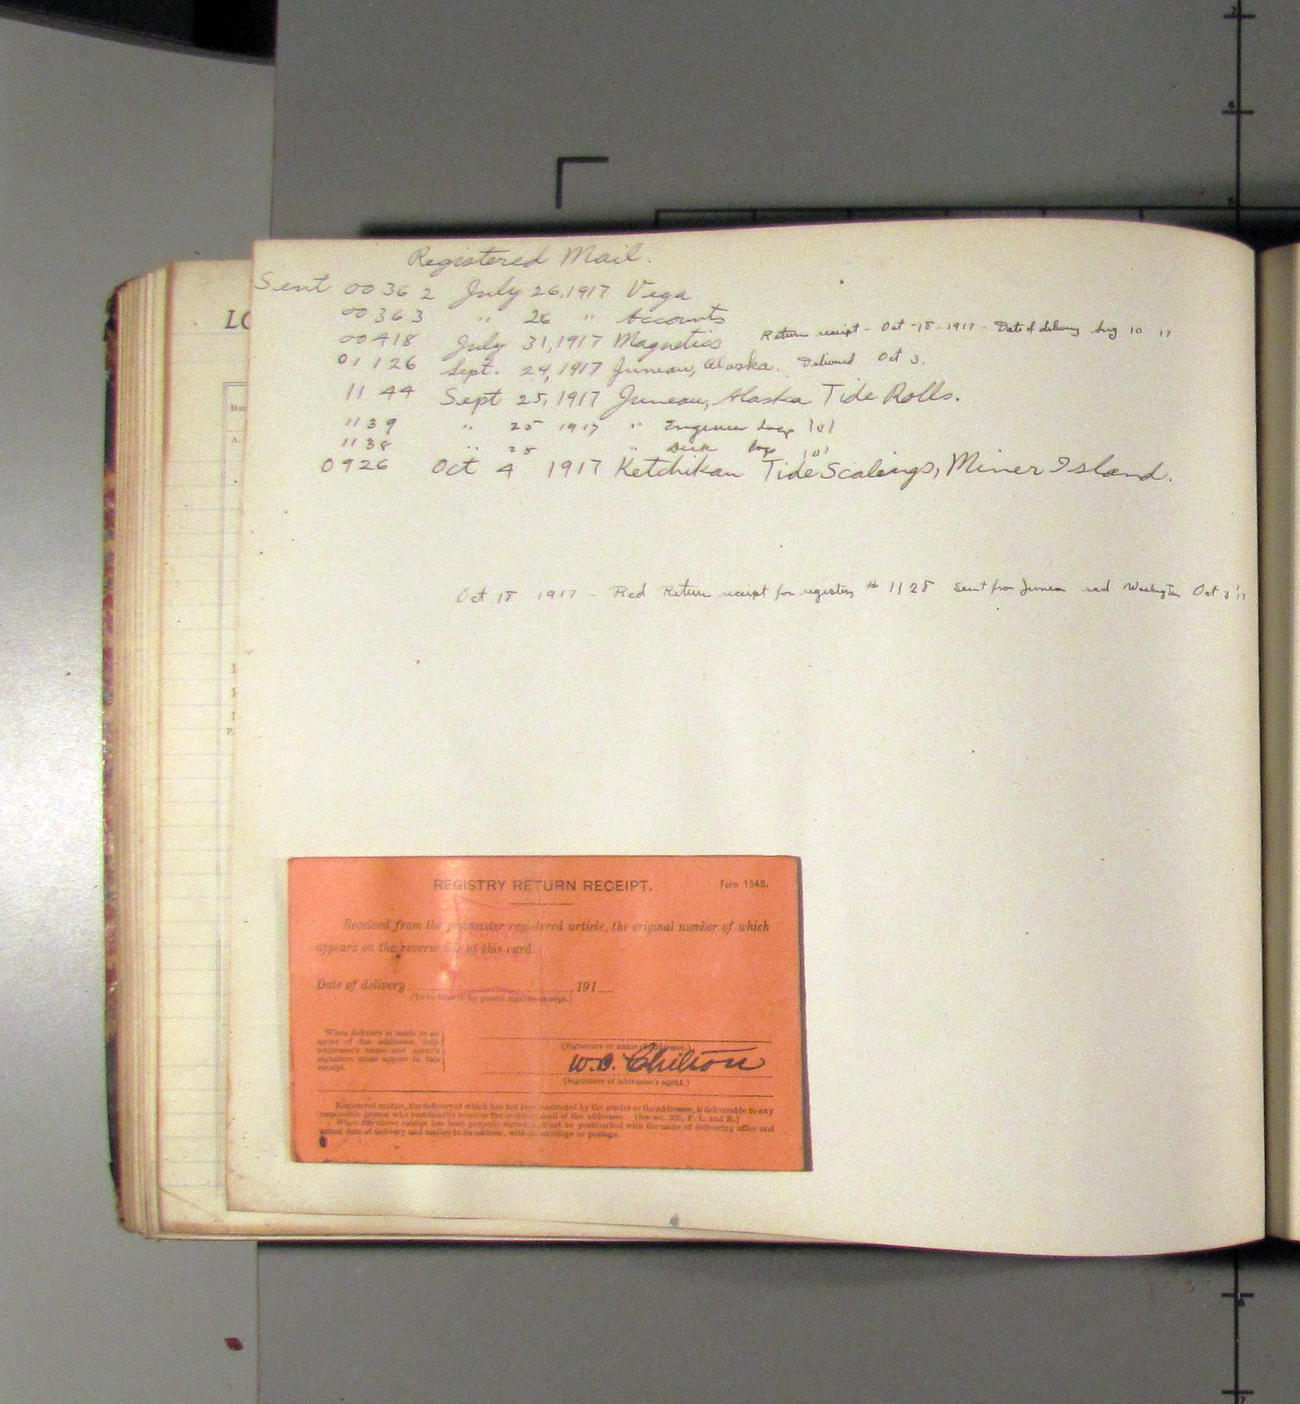 LO
Registered Mail.
Sent 00362 July 26, 1917 Vega
00363 " 26 " Accounts
00418 July 31, 1917 Magnetics Return receipt - Oct - 18 - 1917 - Date of delivery Aug 10 17
01126 Sept. 24, 1917 Juneau, Alaska. Delivered Oct 3.
1144 Sept 25, 1917 Juneau, Alaska Tide Rolls.
1139 " 25 1917 " Engineer Logs
1138 " 25 " Deck logs
0926 Oct 4 1917 Ketchikan Tide Scalings, Miner Island.
Oct 18 1917 - Recd Return receipt for registry # 1128 sent from Juneau recd Washington Oct 3 '17
REGISTRY RETURN RECEIPT. Form 1548.
Received from the postmaster registered article, the original number of which
appears on the reverse side of this card.
Date of delivery , 191
When delivery is made to an
agent of the addressee, both
addressee's name and agent's
signature must appear in this
receipt.
(Signature or name of addressee.)
W. O. Chilton
(Signature of addressee's agent.)
Registered matter, the delivery of which has not been restricted by the sender or the addressee, is deliverable to any
responsible person who customarily receives the ordinary mail of the addressee.
When the above receipt has been properly signed it must be postmarked with the name of delivering office and
actual date of delivery and mailed to its address, without envelope or postage.